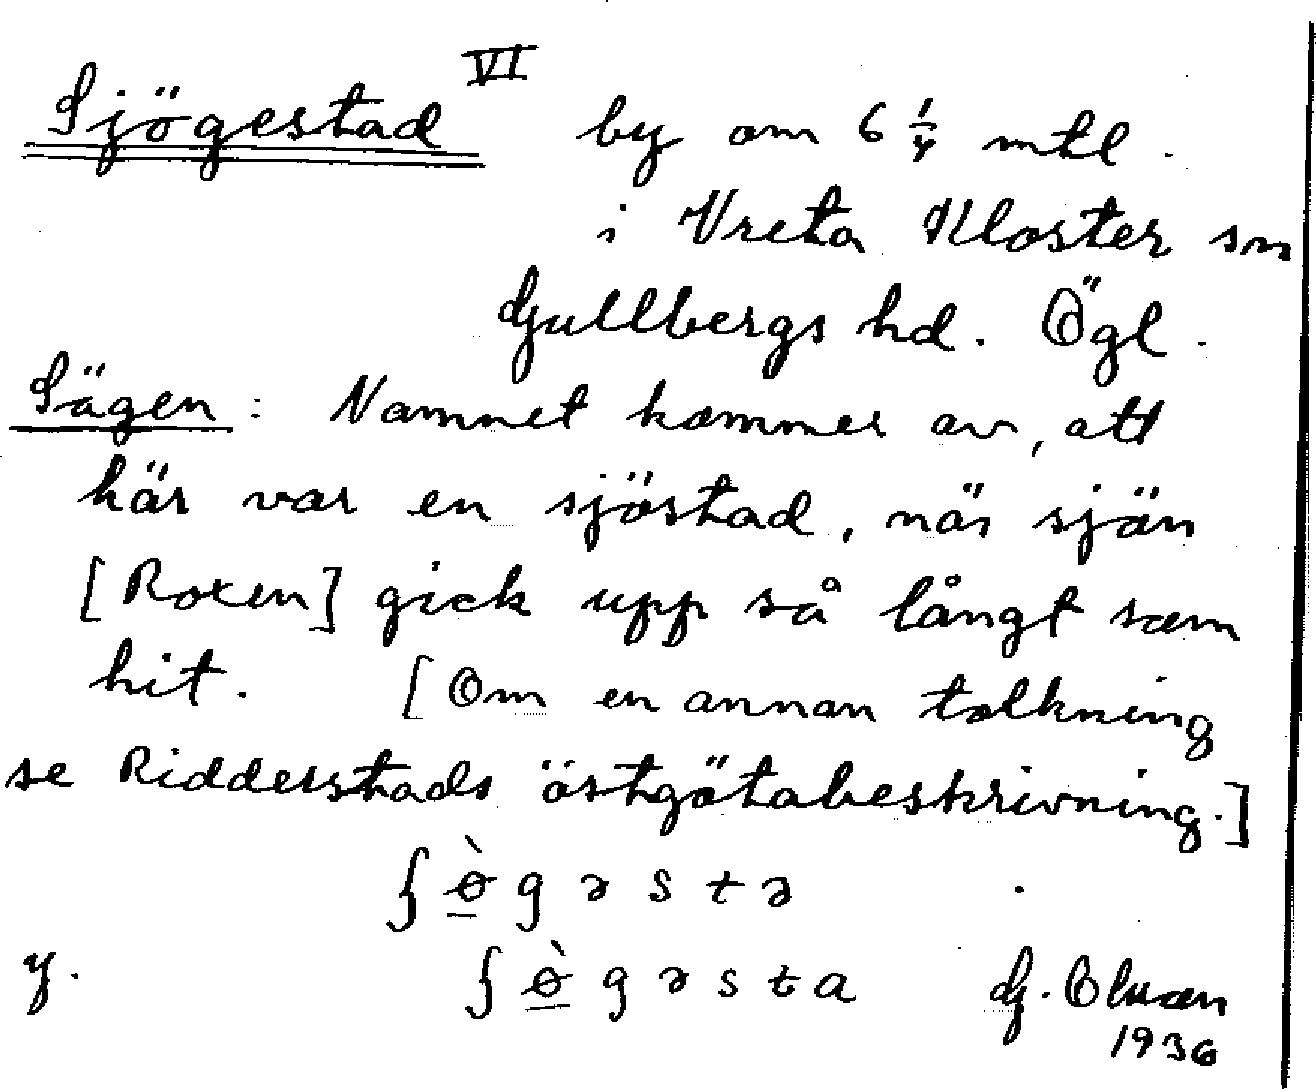 Sjögestad VI by om 6 1/4 mtl.
i Vreta Kloster sn
Gullbergs hd. Ögl.
Sägen: Namnet kommer av, att
här var en sjöstad, när sjön
[Roxen] gick upp så långt som
hit. [Om en annan tolkning
se Ridderstads östgötabeskrivning.]
ʃɵ̠̀gəstə
y. ʃɵ̠̀gəsta G. Olsson
1936